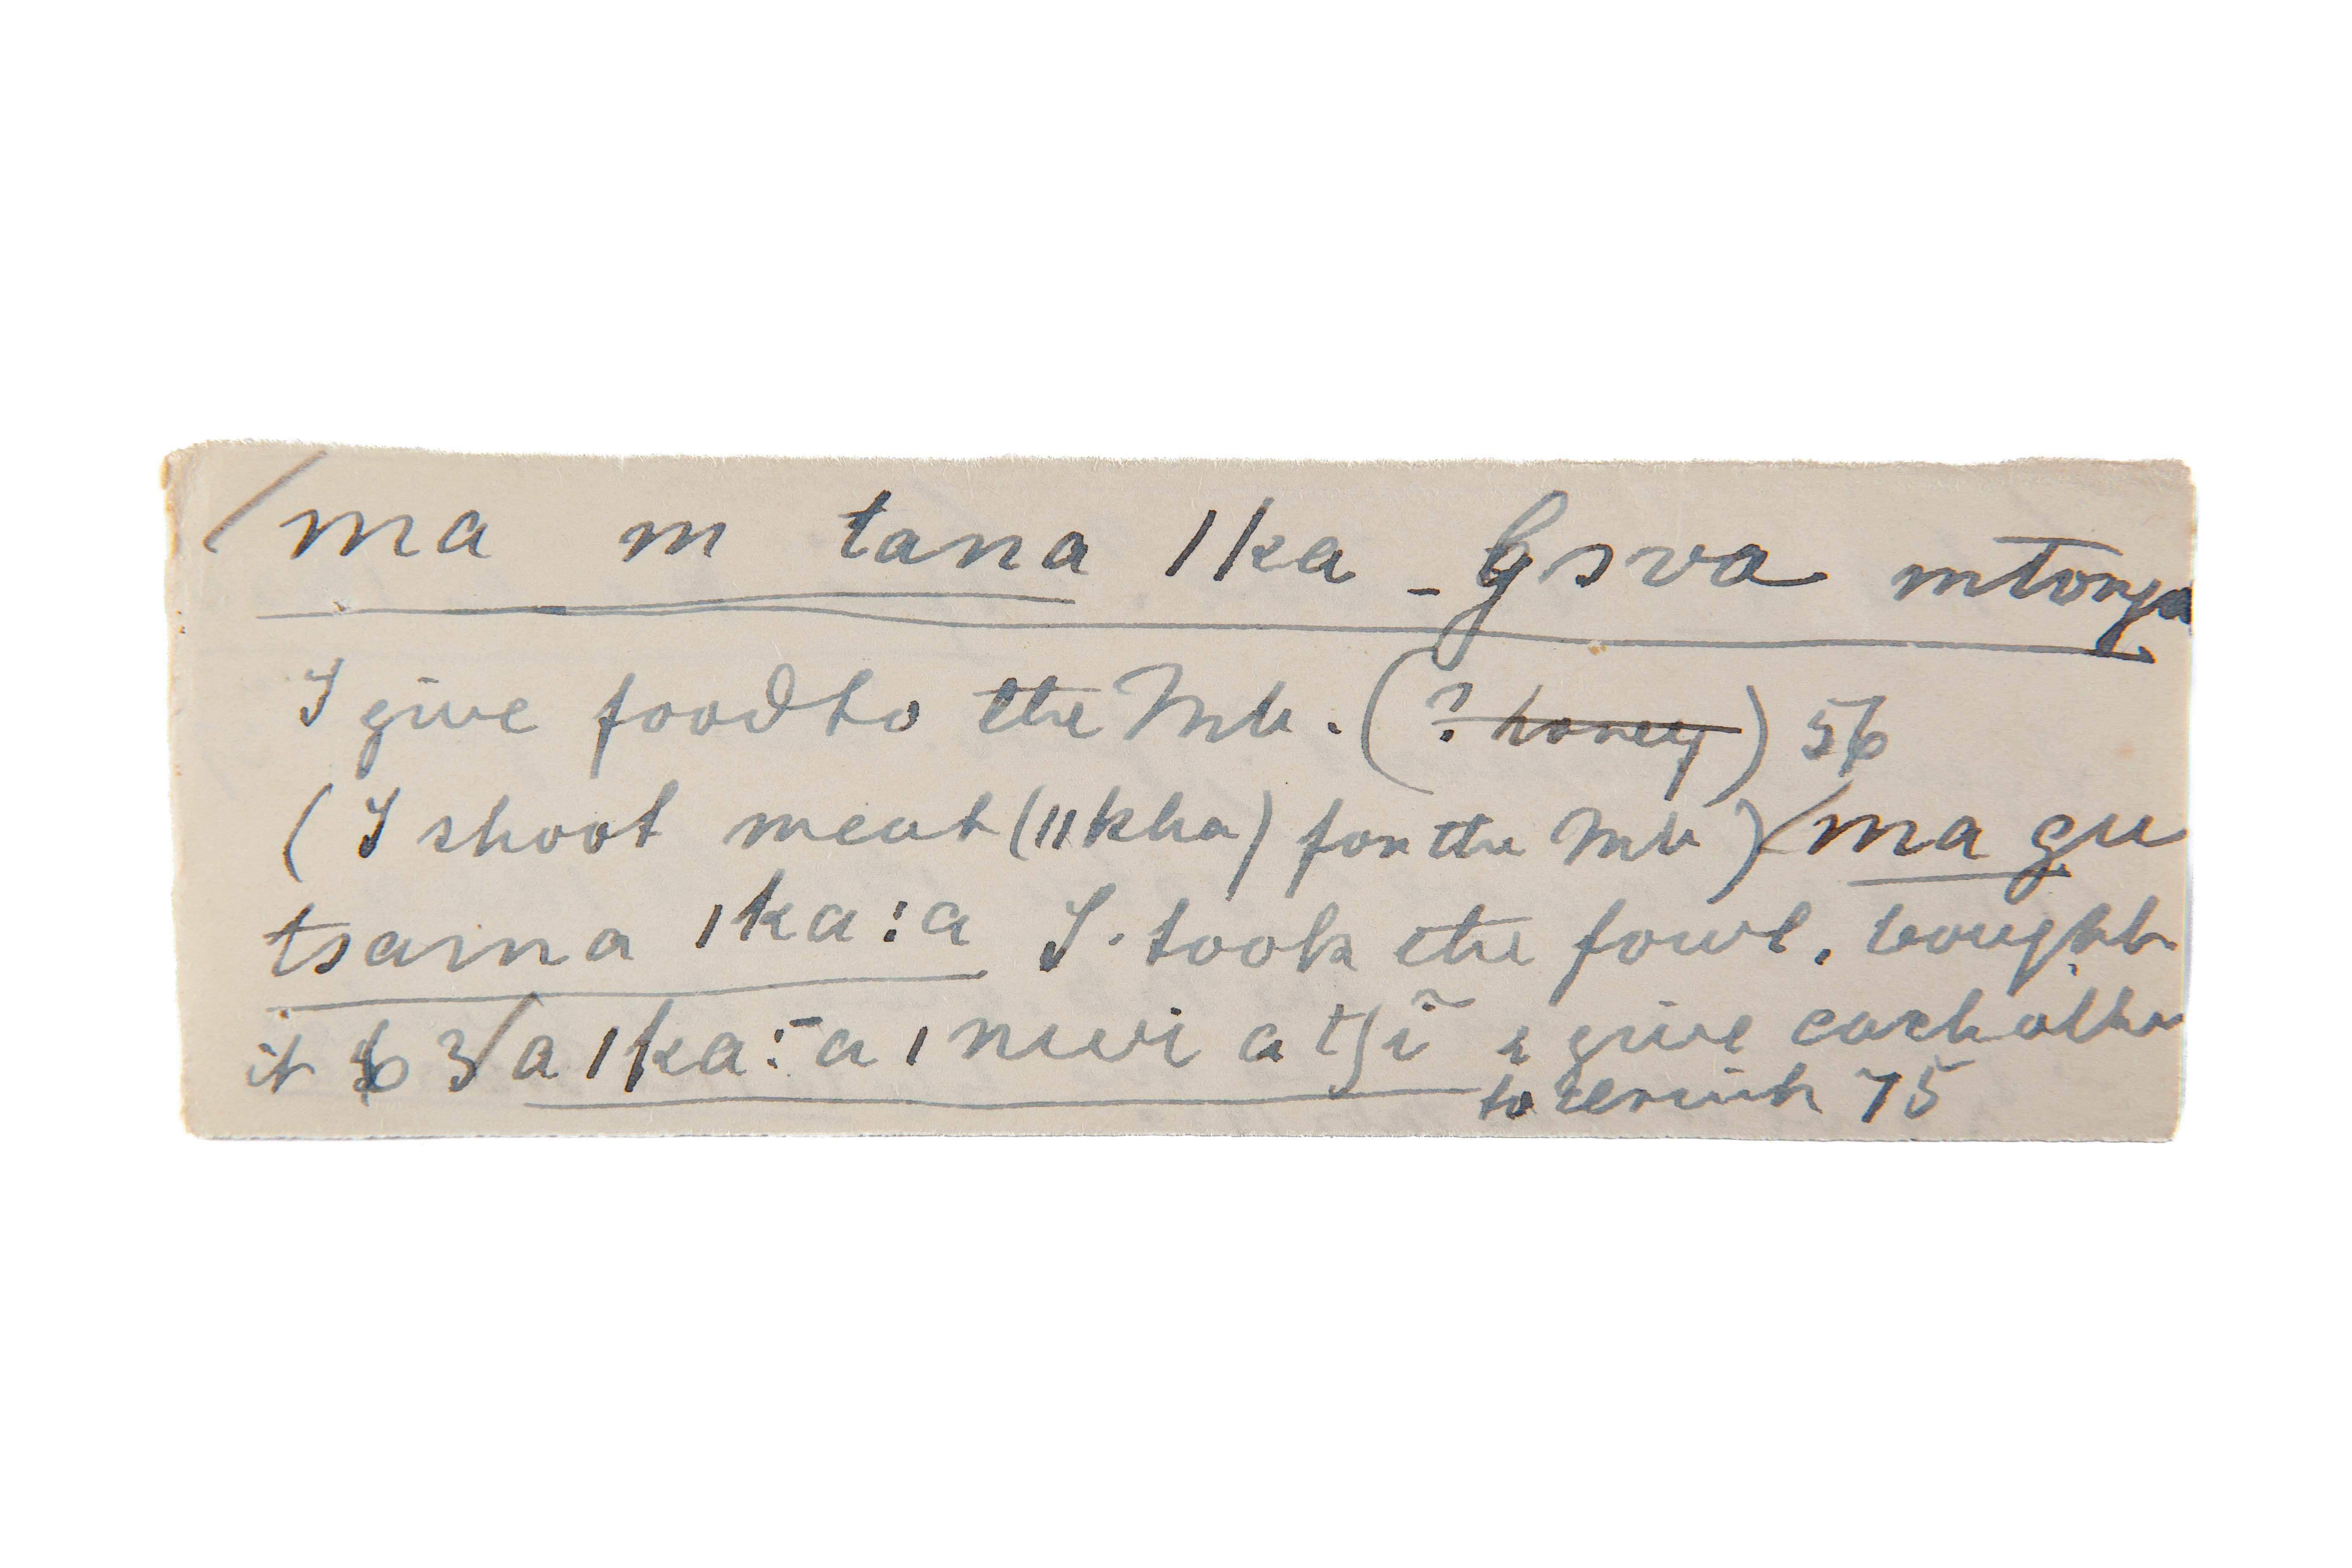 /ma m tana ǀka - Gsva mtonga
I give food to the Mb. (? honey) 56
(I shoot meat (ǁkha) for the Mb) /ma gu
tsama ǀka:a I took the fowl, bought
it 36 3/a ǀka:-a ǀnuvi a tʃĩ & give each other
to drink 75